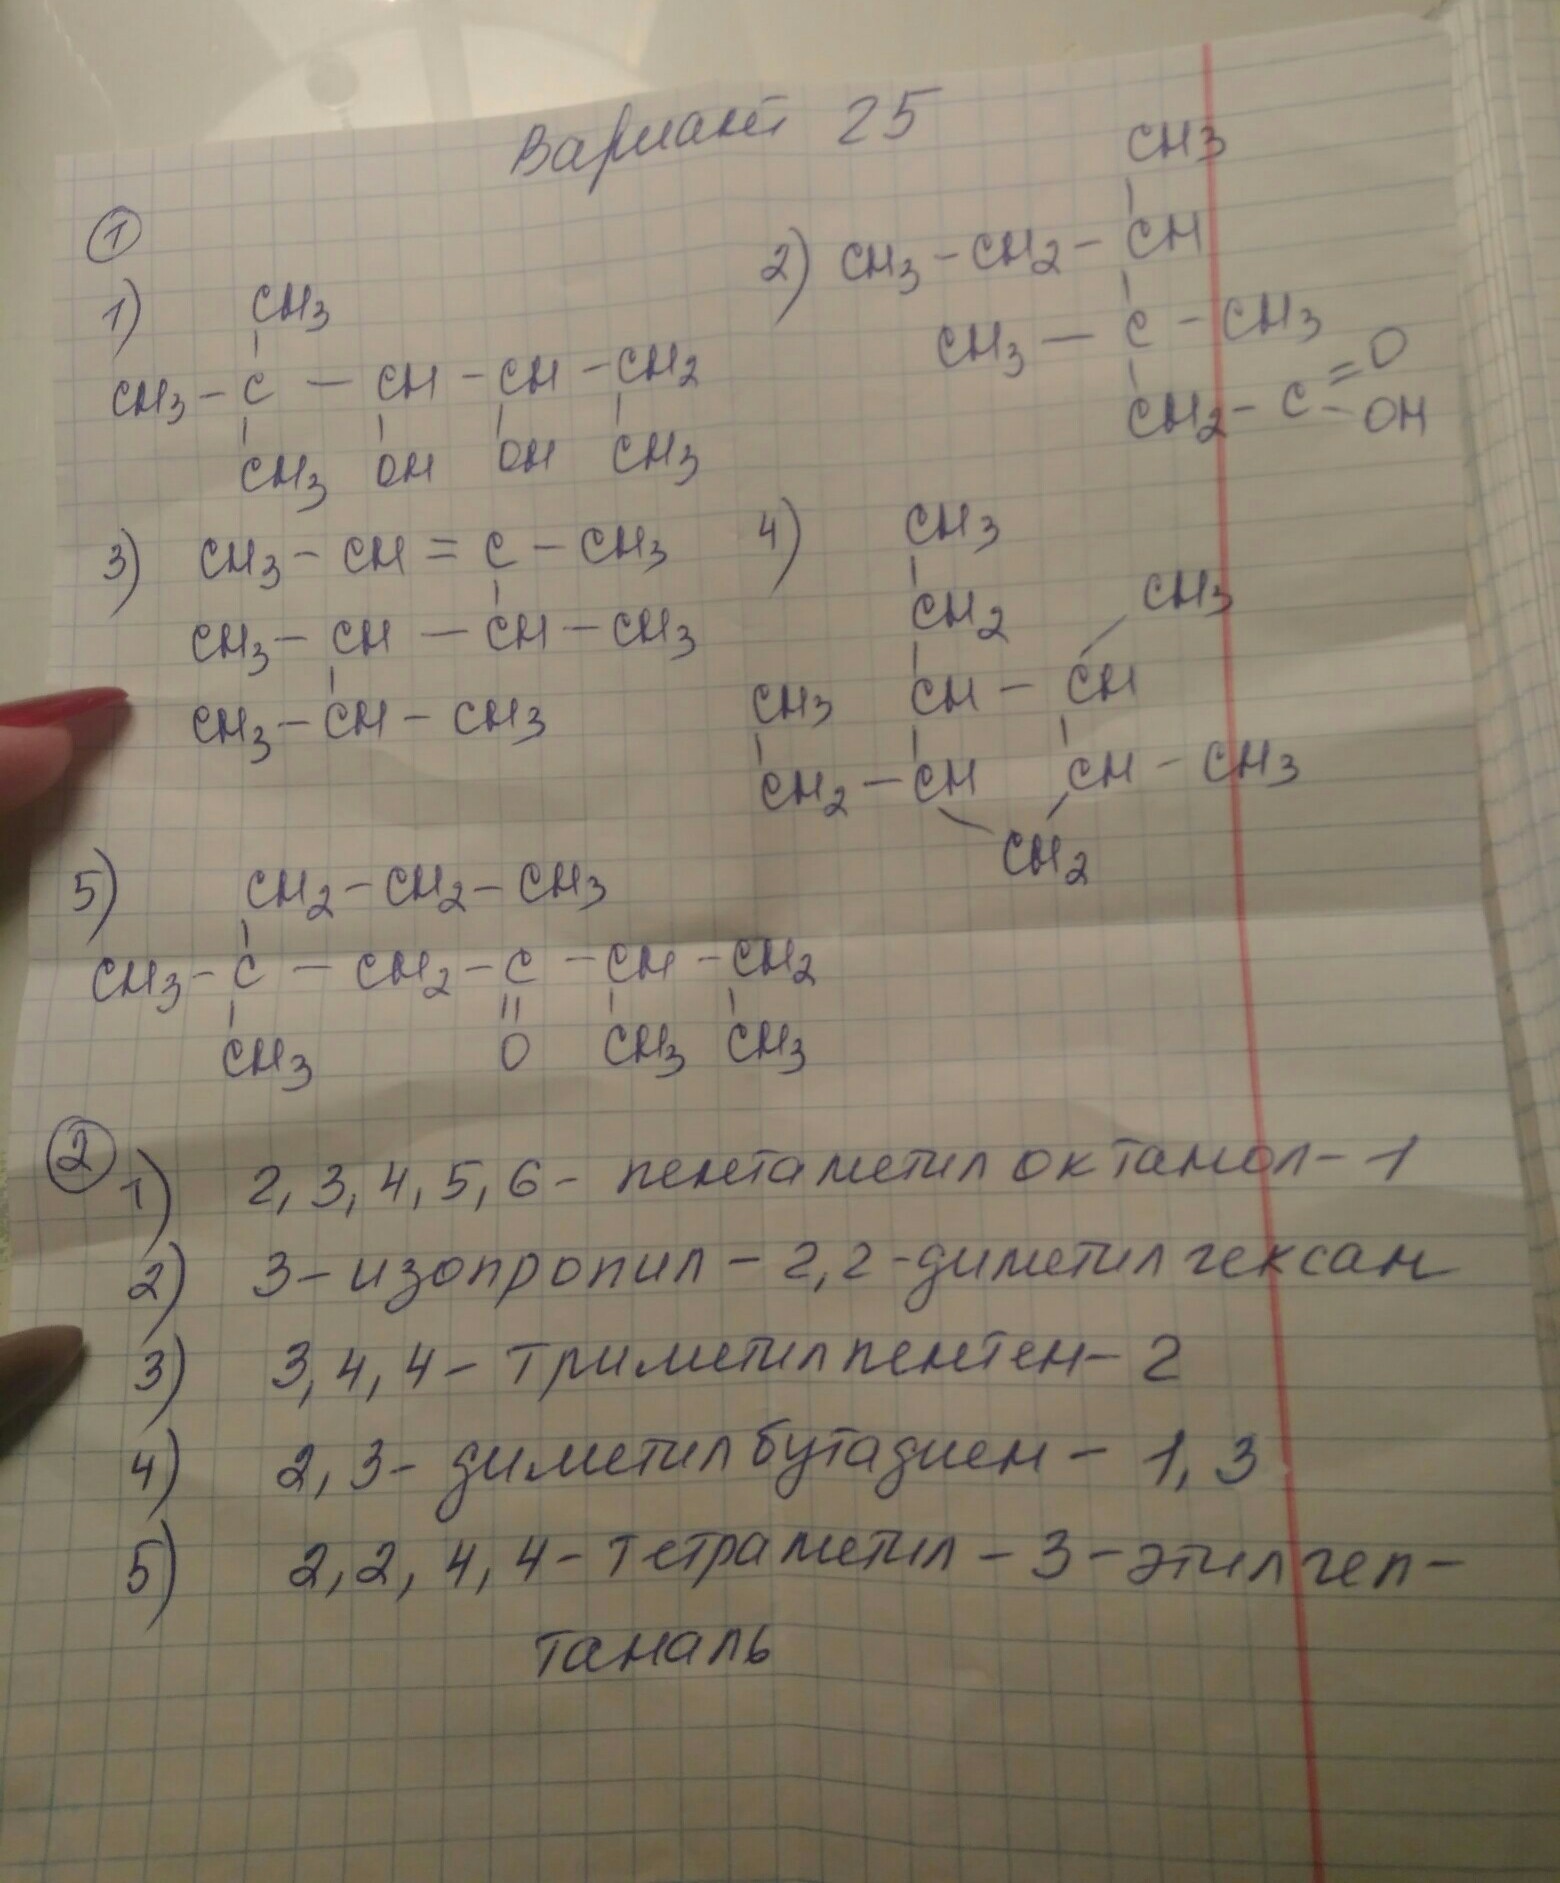 Вариант 25
①
1) CH3
CH3 – C – CH – CH – CH2
CH3 OH OH CH3
2) CH3 – CH2 – CH
CH3
CH3 – C – CH3
CH2 – C = O
– OH
3) CH3 – CH = C – CH3
CH3 – CH – CH – CH3
CH3 – CH – CH3
4) CH3
CH2 CH3
CH3 CH – CH
CH2 – CH CH – CH3
CH2
5) CH2 – CH2 – CH3
CH3 – C – CH2 – C – CH – CH2
CH3 O CH3 CH3
②
1) 2, 3, 4, 5, 6 - пентаметилоктанол - 1
2) 3 - изопропил - 2,2 - диметилгексан
3) 3, 4, 4 - триметилпентен - 2
4) 2, 3 - диметилбутадиен - 1, 3
5) 2,2, 4, 4 - тетраметил - 3 - этилгеп-
таналь